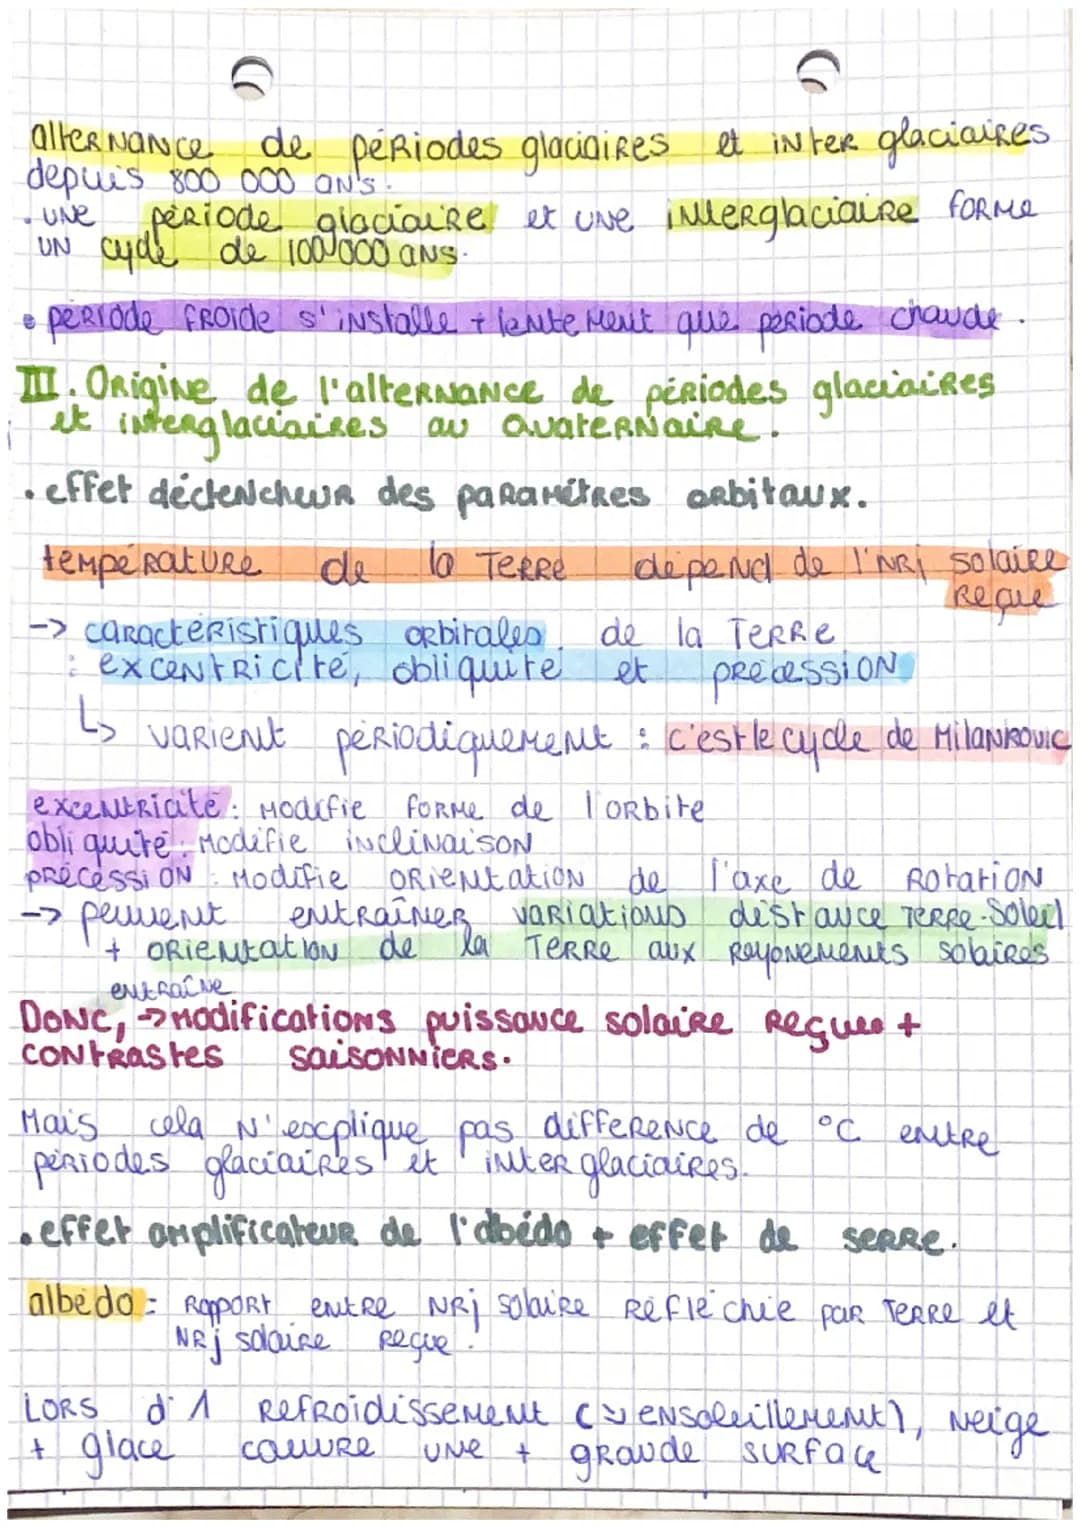 alternance de périodes glaciaires et inter glaciaires
depuis 800 000 ans.
. une période glaciaire et une interglaciaire forme
un cycle de 100 000 ans.
• période froide s'installe + lentement que période chaude.
III. Origine de l'alternance de périodes glaciaires
et interglaciaires au Quaternaire.
. effet déclencheur des paramètres orbitaux.
température de la Terre dépend de l'NRj solaire
reçue
-> caractéristiques orbitales de la Terre
: excentricité, obliquité et précession
↳ varient périodiquement : c'est le cycle de Milankovic
excentricité : modifie forme de l'orbite
obliquité : modifie inclinaison
précession : modifie orientation de l'axe de rotation
-> peuvent entraîner variations distance Terre-Soleil
+ orientation de la Terre aux rayonements solaires
entraîne
Donc, -> modifications puissance solaire reçues +
contrastes saisonniers.
Mais cela n'explique pas différence de °C entre
périodes glaciaires et inter glaciaires.
. effet amplificateur de l'abédo + effet de serre.
albédo = rapport entre NRj solaire réfléchie par Terre et
NRj solaire reçue.
Lors d'1 refroidissement (↘ ensoleillement), neige
+ glace couvre une + grande surface